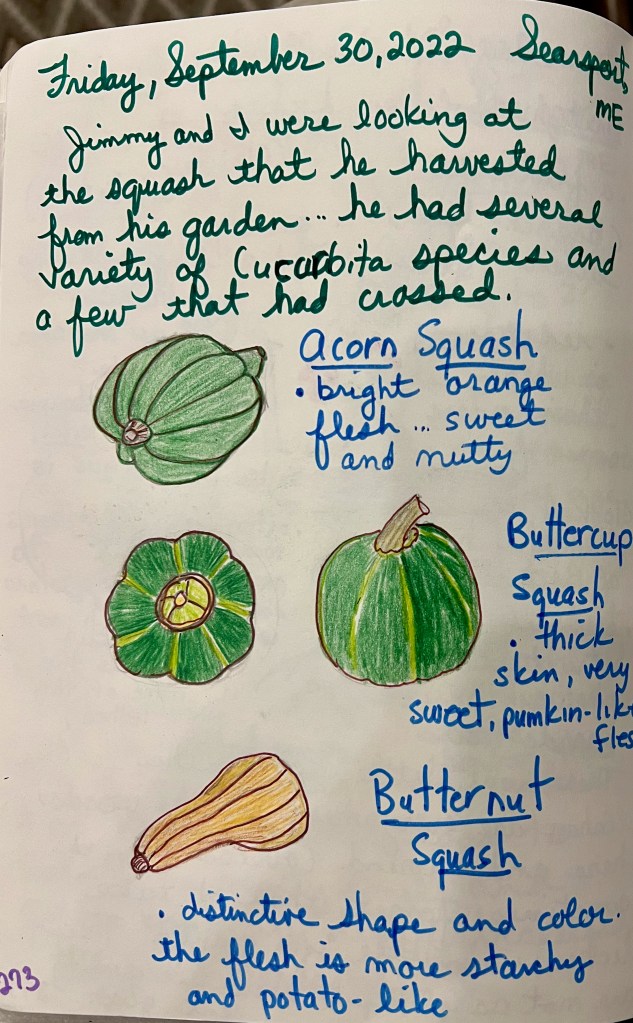 Friday, September 30, 2022 Searsport,
ME
Jimmy and I were looking at
the squash that he harvested
from his garden... he had several
variety of Cucurbita species and
a few that had crossed.
Acorn Squash
• bright orange
flesh... sweet
and nutty
Buttercup
Squash
• thick
skin, very
sweet, pumkin-like
fles
Butternut
Squash
• distinctive shape and color.
the flesh is more starchy
and potato-like
273